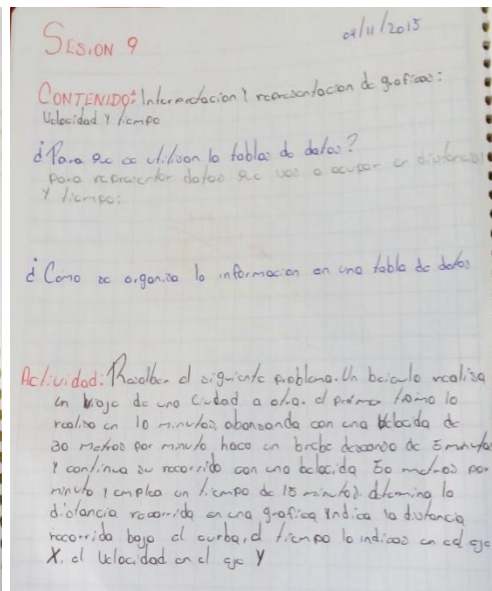 SESION 9
04/11/2015
CONTENIDO: Interpretacion Y representacion de graficas:
Velocidad Y tiempo
¿Para que se utilisan la tablas de datos?
Para representar datos que vas a ocupar en distancias
Y tiempo:
¿Como se organisa la informacion en una tabla de datos
Actividad: Resolber el siguiente problema. Un beiculo realisa
un biaje de una Ciudad a otra. el primer tramo lo
realisa en 10 minutos, abansando con una belocida de
30 metros por minuto hace un brebe descanso de 5 minutos
Y continua su recorrido con una belocida 50 metros por
minuto y emplea un tiempo de 15 minutos. determina la
distancia recorrida en una grafica indica la distancia
recorrida bajo el curba, el tiempo lo indicas en el eje
X. el Velocidad en el eje Y